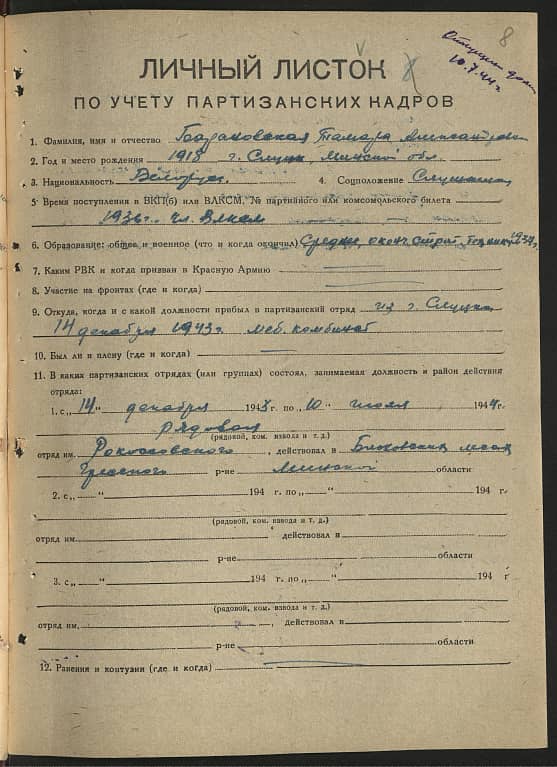 8
10.7.44 г.
ЛИЧНЫЙ ЛИСТОК
ПО УЧЕТУ ПАРТИЗАНСКИХ КАДРОВ
1. Фамилия, имя и отчество Тамара Александровна
2. Год и место рождения 1918 г. Слуцк, Минской обл.
3. Национальность Белорус. 4. Соцположение Служащая
5. Время поступления в ВКП(б) или ВЛКСМ, № партийного или комсомольского билета
1936 г. чл. ВЛКСМ
6. Образование: общее и военное (что и когда окончил) Среднее, оконч. строит. техник. 1937 г.
7. Каким РВК и когда призван в Красную Армию
8. Участие на фронтах (где и когда)
9. Откуда, когда и с какой должности прибыл в партизанский отряд из г. Слуцка
14 декабря 1943 г. меб. комбинат
10. Был ли в плену (где и когда)
11. В каких партизанских отрядах (или группах) состоял, занимаемая должность и район действия
отряда:
1. с „14" декабря 1943 г. по „10" июля 1944 г.
рядовой
(рядовой, ком. взвода и т. д.)
отряд им. Рокоссовского, действовал в лесах
Гресского р-не Минской области
2. с „ " 194 г. по „ " 194 г.
(рядовой, ком. взвода и т. д.)
отряд им. действовал в
р-не области
3. с „ " 194 г. по „ " 194 г
(рядовой, ком. взвода и т. д.)
отряд им. , действовал в
р-не области
12. Ранения и контузии (где и когда)